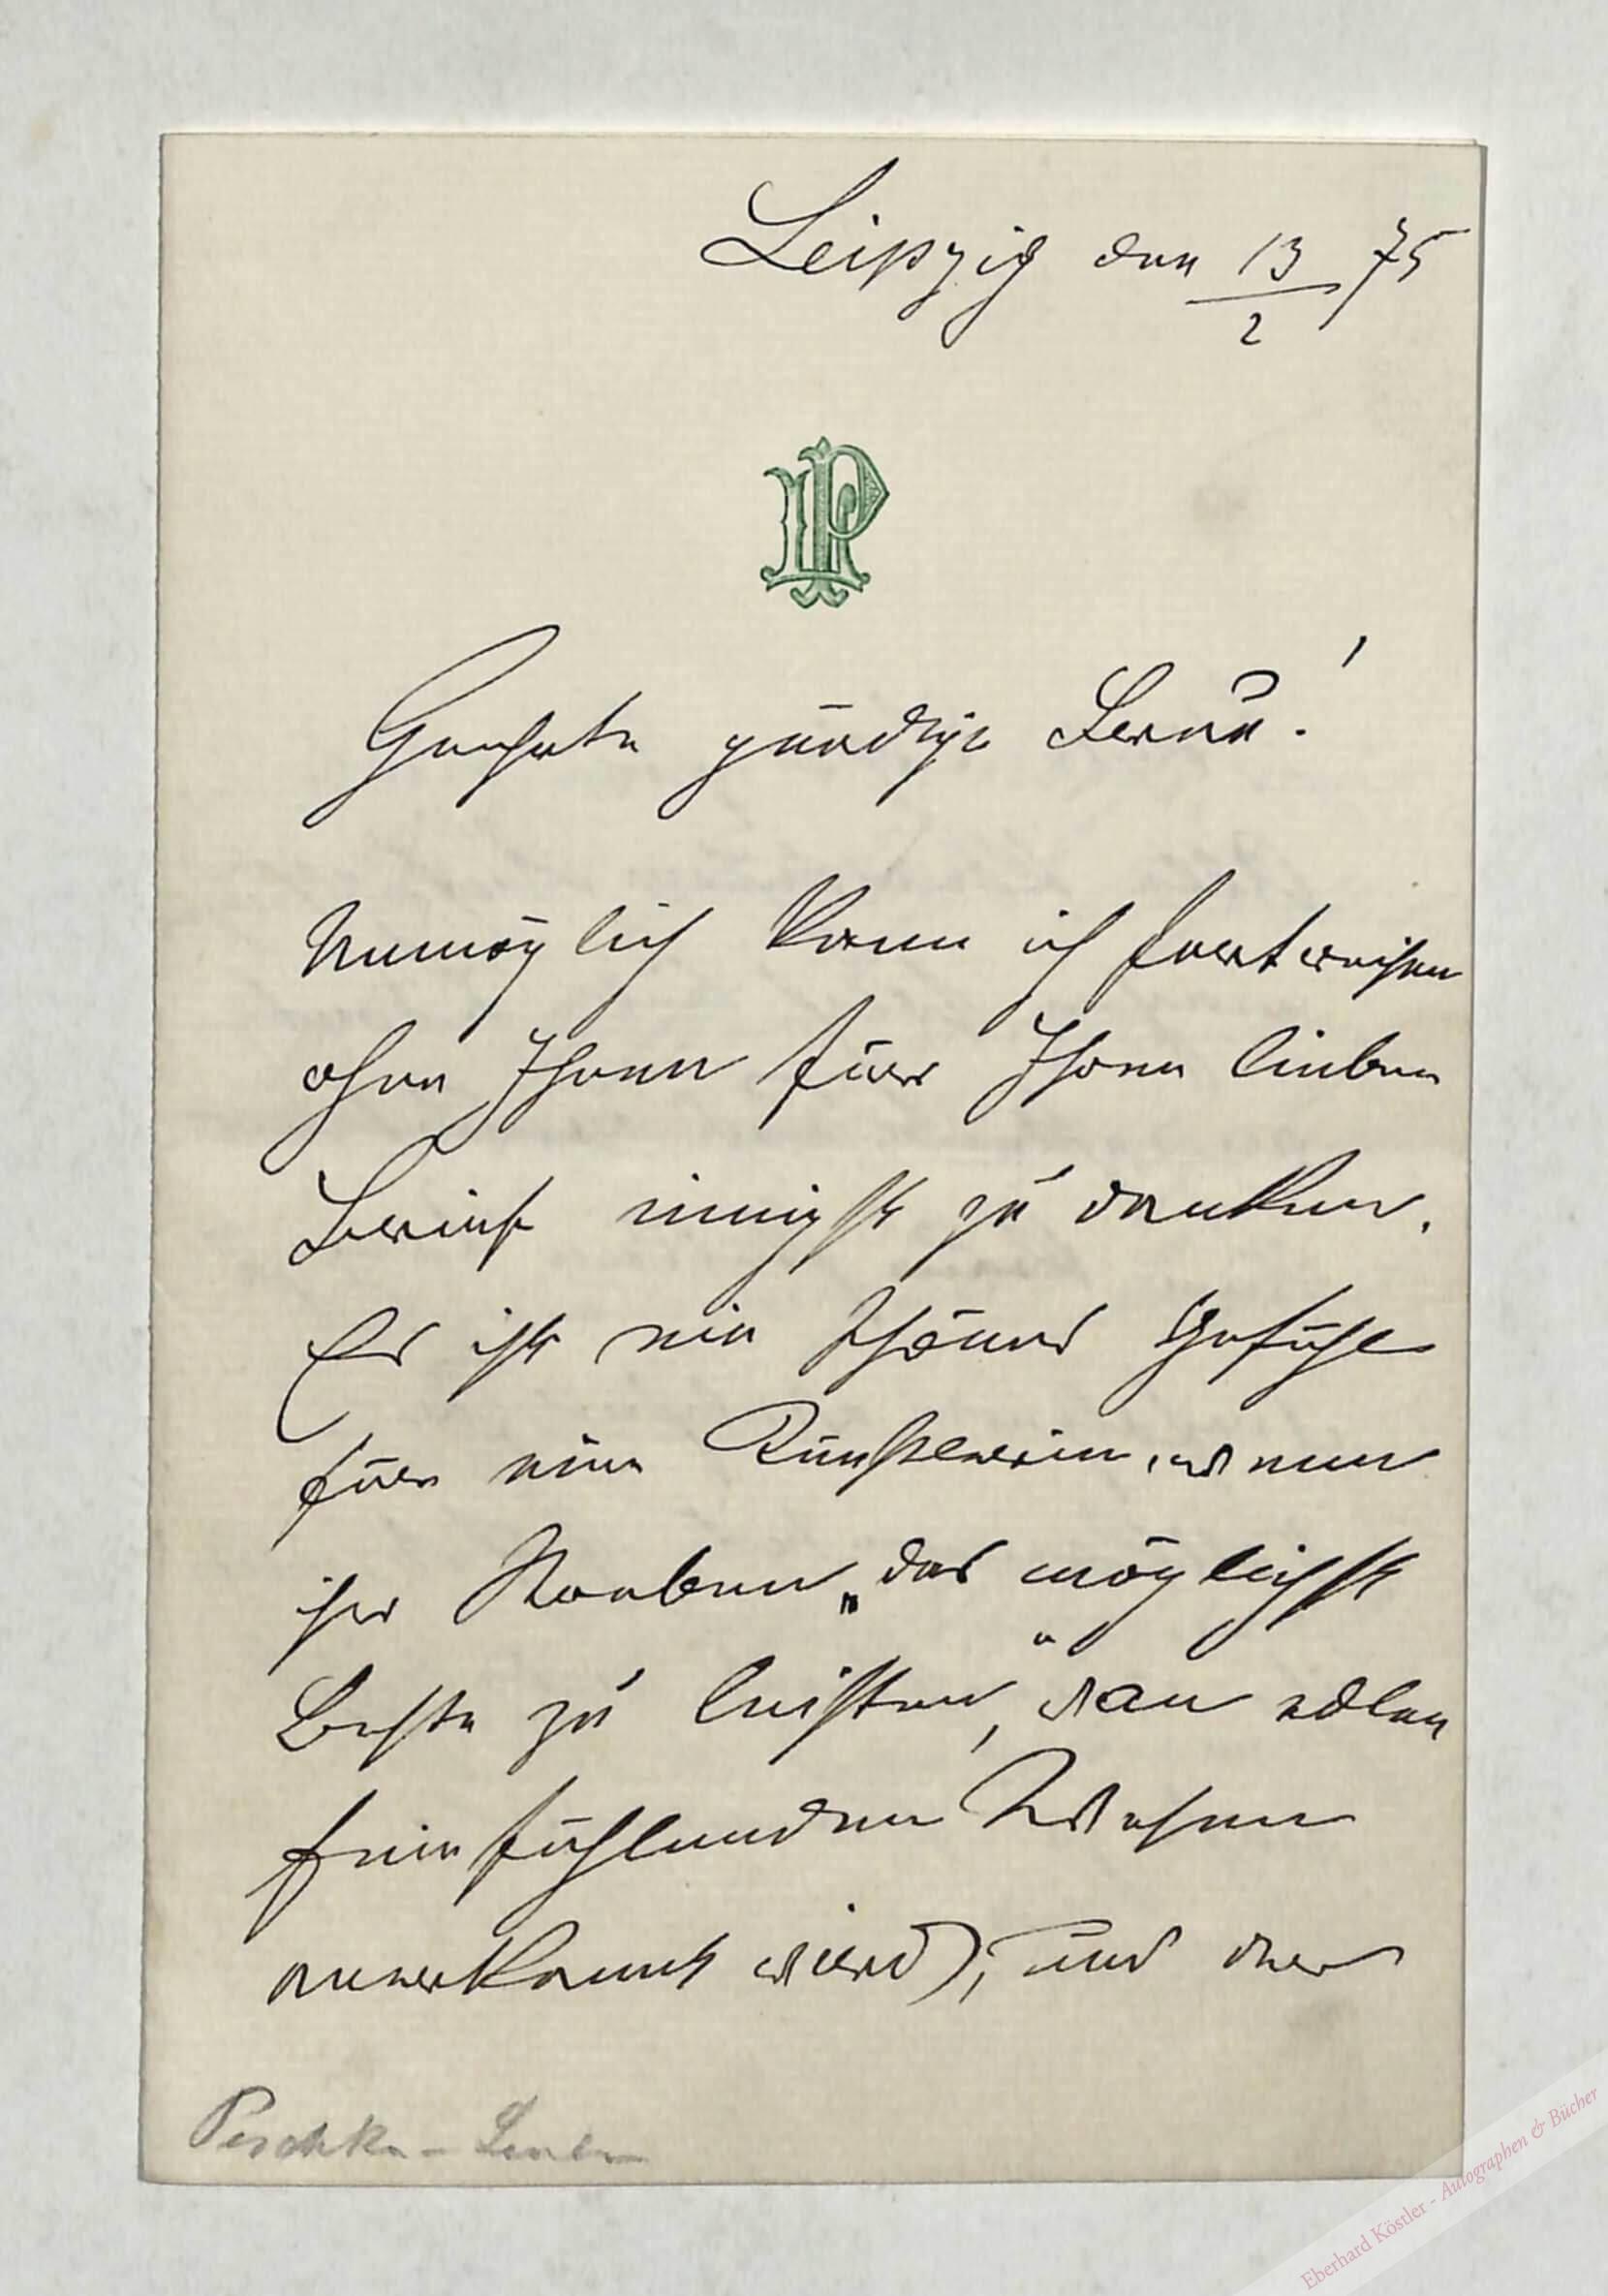 Leipzig den 13/2 75
LP
Geehrte gnädige Frau!
Unmöglich kann ich fortreisen
ohne Ihnen für Ihren lieben
Brief innigst zu danken.
Es ist ein schönes Gefühl
für eine Künstlerin, wenn
ihr Streben „das möglichst
Beste zu leisten", von edlen
feinfühlenden Wesen
anerkannt wird, und der
Peschka-Leutner
Eberhard Köstler - Autographen & Bücher